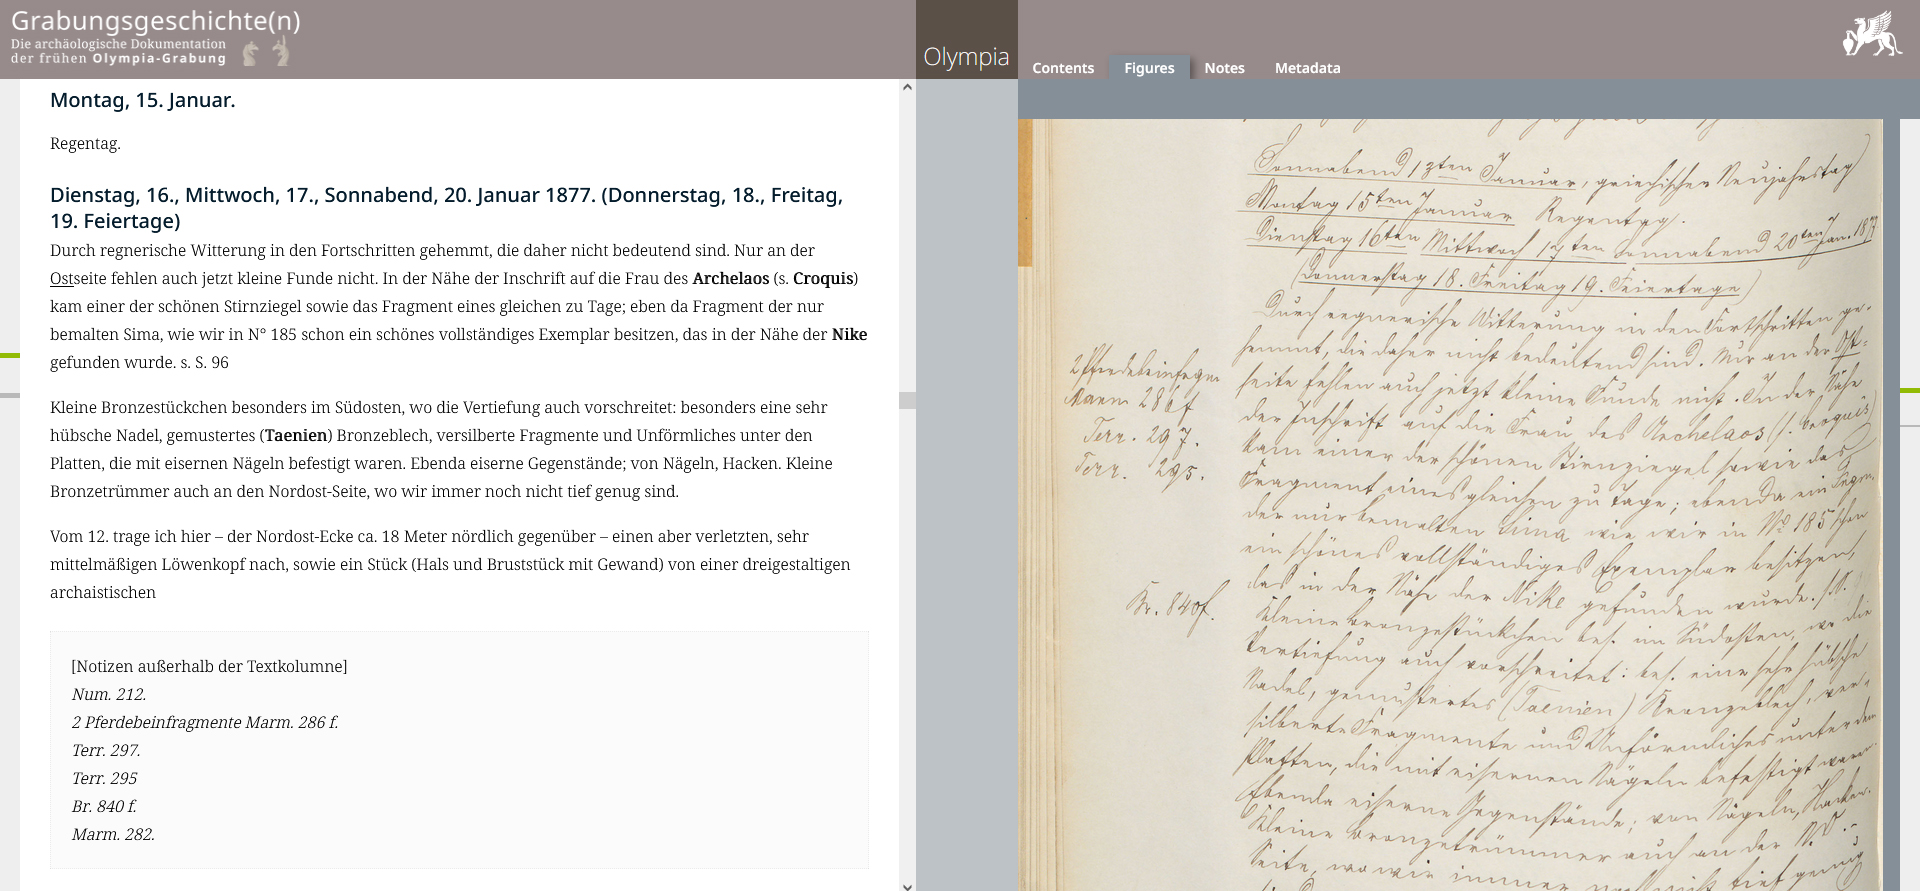 Grabungsgeschichte(n)
Die archäologische Dokumentation
der frühen Olympia-Grabung
Olympia
Contents
Figures
Notes
Metadata
Montag, 15. Januar.
Regentag.
Dienstag, 16., Mittwoch, 17., Sonnabend, 20. Januar 1877. (Donnerstag, 18., Freitag,
19. Feiertage)
Durch regnerische Witterung in den Fortschritten gehemmt, die daher nicht bedeutend sind. Nur an der
Ostseite fehlen auch jetzt kleine Funde nicht. In der Nähe der Inschrift auf die Frau des Archelaos (s. Croquis)
kam einer der schönen Stirnziegel sowie das Fragment eines gleichen zu Tage; eben da Fragment der nur
bemalten Sima, wie wir in N° 185 schon ein schönes vollständiges Exemplar besitzen, das in der Nähe der Nike
gefunden wurde. s. S. 96
Kleine Bronzestückchen besonders im Südosten, wo die Vertiefung auch vorschreitet: besonders eine sehr
hübsche Nadel, gemustertes (Taenien) Bronzeblech, versilberte Fragmente und Unförmliches unter den
Platten, die mit eisernen Nägeln befestigt waren. Ebenda eiserne Gegenstände; von Nägeln, Hacken. Kleine
Bronzetrümmer auch an den Nordost-Seite, wo wir immer noch nicht tief genug sind.
Vom 12. trage ich hier – der Nordost-Ecke ca. 18 Meter nördlich gegenüber – einen aber verletzten, sehr
mittelmäßigen Löwenkopf nach, sowie ein Stück (Hals und Bruststück mit Gewand) von einer dreigestaltigen
archaistischen
[Notizen außerhalb der Textkolumne]
Num. 212.
2 Pferdebeinfragmente Marm. 286 f.
Terr. 297.
Terr. 295
Br. 840 f.
Marm. 282.
Sonnabend 13ten Januar, griechischer Neujahrstag
Montag 15ten Januar Regentag.
Dienstag 16ten Mittwoch 17ten Sonnabend 20ten Jan. 1877
(Donnerstag 18. Freitag 19. Feiertage)
Durch regnerische Witterung in den Fortschritten ge-
hemmt, die daher nicht bedeutend sind. Nur an der Ost-
seite fehlen auch jetzt kleine Funde nicht. In der Nähe
der Inschrift auf die Frau des Archelaos (s. Croquis)
kam einer der schönen Stirnziegel sowie das
Fragment eines gleichen zu Tage; ebenda ein Fragm.
der nur bemalten Sima wie wir in No 185 schon
ein schönes vollständiges Exemplar besitzen,
das in der Nähe der Nike gefunden wurde. s. S.
Kleine Bronzestückchen bes. im Südosten, wo die
Vertiefung auch vorschreitet: bes. eine sehr hübsche
Nadel, gemustertes (Taenien) Bronzeblech, ver-
silberte Fragmente und Unförmliches unter den
Platten, die mit eisernen Nägeln befestigt waren.
Ebenda eiserne Gegenstände; von Nägeln, Hacken.
Kleine Bronzetrümmer auch an der N.O.-
Seite, wo wir immer noch nicht tief genug
2 Pferdebeinfragm
Marm 286 f
Terr. 297.
Terr. 295.
Br. 840 f.